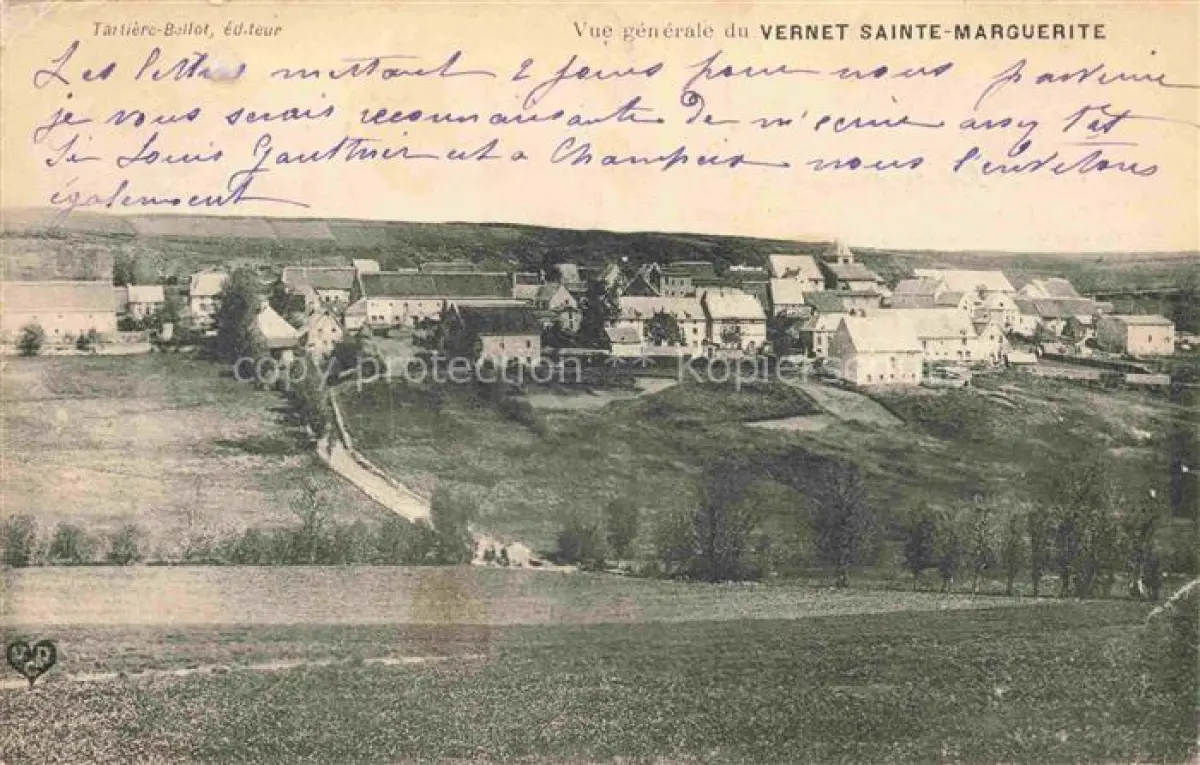 Tartière-Ballot, éditeur
Vue générale du VERNET SAINTE-MARGUERITE
Les lettres mettant 2 jours pour nous parvenir
je vous serais reconnaissante de m'écrire assez tôt
Si Louis Gauthier est à Champeix nous l'invitons
également
copy protection Kopierschutz
VDC